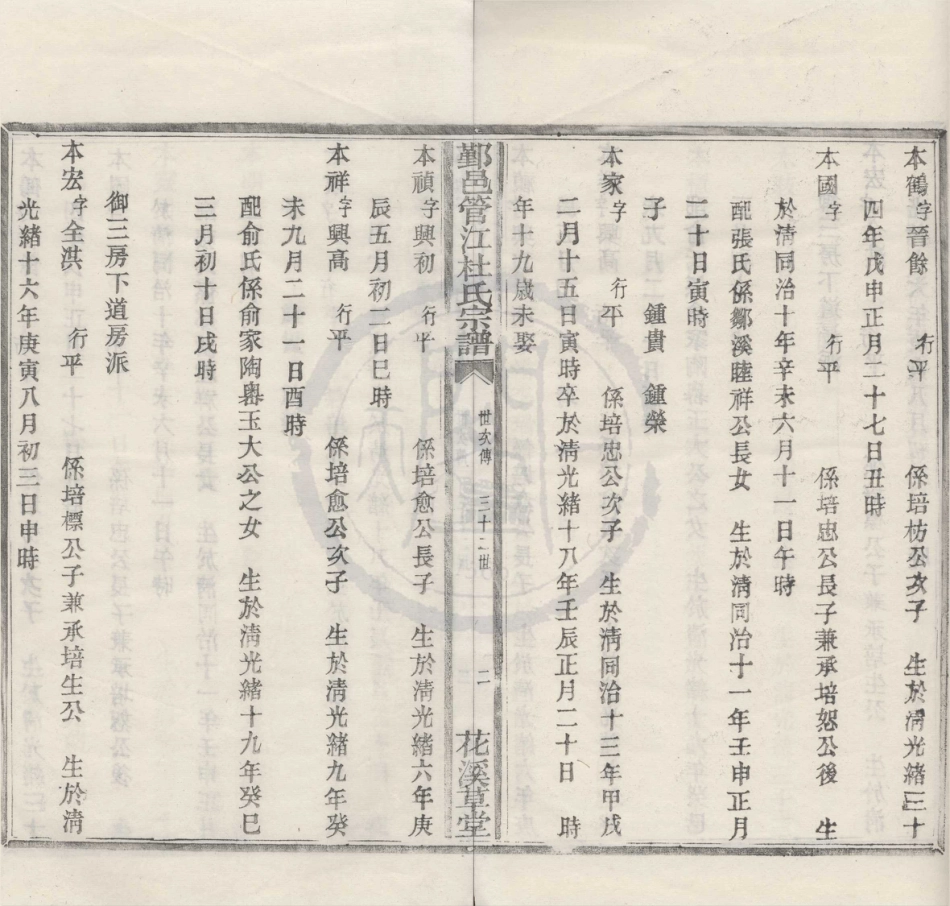 本鶴字晉餘 行平 係培枋公次子 生於清光緒三十
四年戊申正月二十七日丑時
本國字 行平 係培忠公長子兼承培恕公後 生
於清同治十年辛未六月十一日午時
配張氏係鄒溪睦祥公長女 生於清同治十一年壬申正月
二十日寅時
子 鍾貴 鍾榮
本家字 行平 係培忠公次子 生於清同治十三年甲戌
二月十五日寅時卒於清光緒十八年壬辰正月二十日 時
年十九歲未娶
鄞邑管江杜氏宗譜 世次傳 三十二世 二 花溪草堂
本禎字興初 行平 係培愈公長子 生於清光緒六年庚
辰五月初二日巳時
本祥字興高 行平 係培愈公次子 生於清光緒九年癸
未九月二十一日酉時
配俞氏係俞家陶嶴玉大公之女 生於清光緒十九年癸巳
三月初十日戌時
御三房下道房派
本宏字全淇 行平 係培標公子兼承培生公 生於清
光緒十六年庚寅八月初三日申時